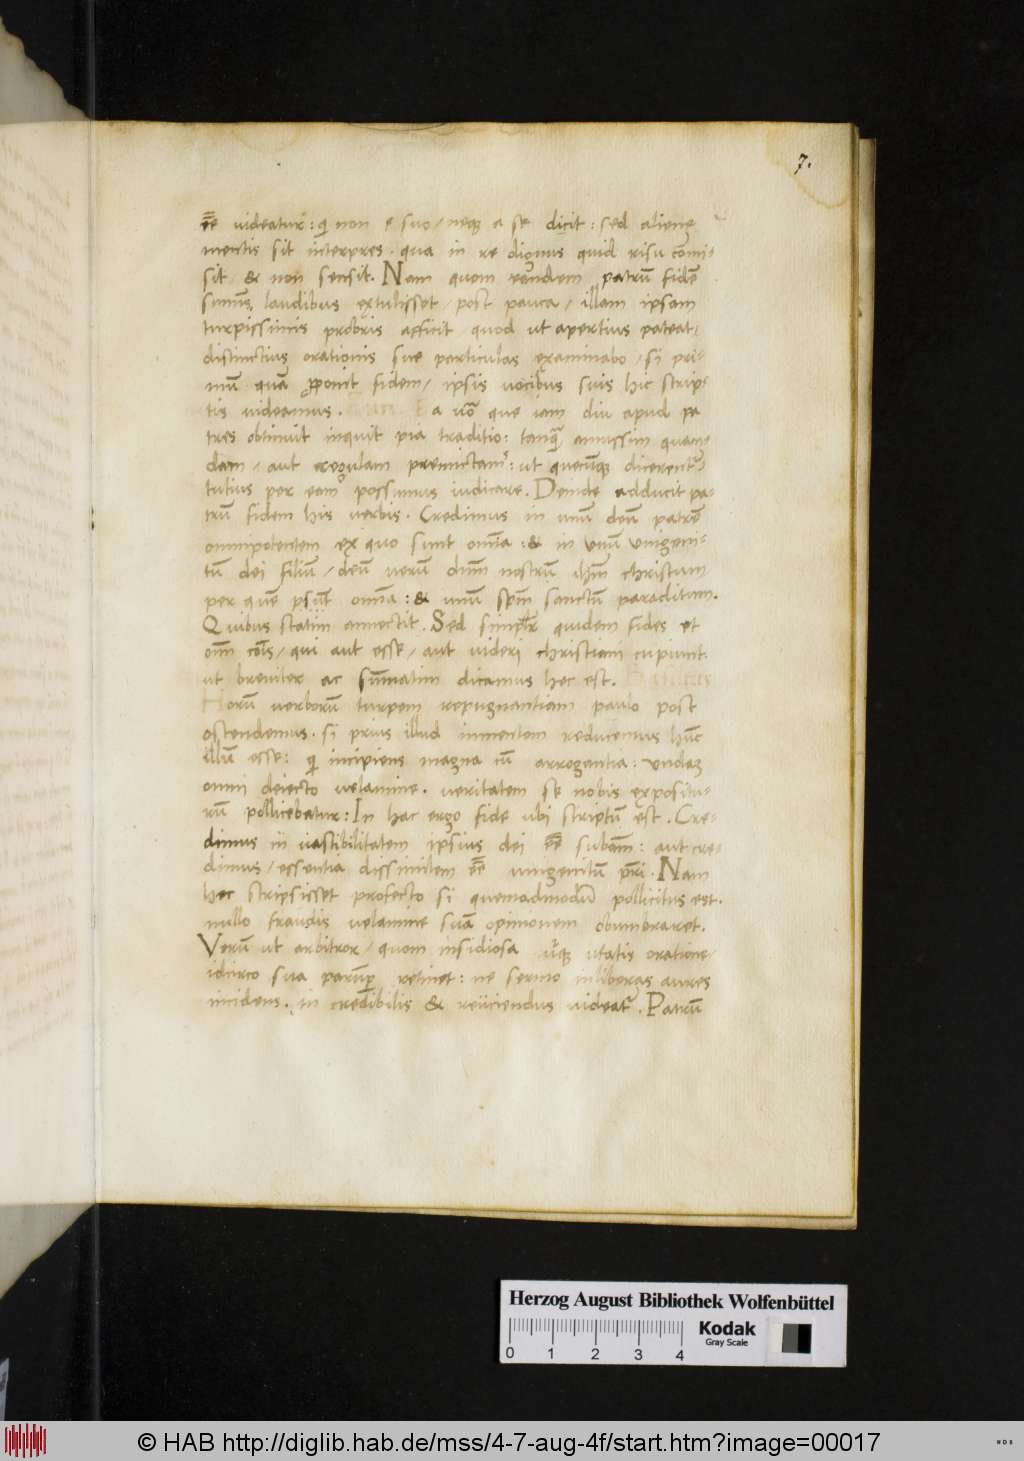 7.
e͞e͞ videatur: qi non e suo / neq3 a se dicit: sed alienę
mentis sit interpres. qua in re dignus quid risu comi-
sit & non sensit. Nam quom eandem patrũ fidẽ
summis laudibus extulisset / post pauca / illam ipsam
turpissimis probris afficit quod ut apertius pateat
distinctius orationis sue particulas examinabo / si pri-
mũ quã proponit fidem / ipsis vocibus suis hic scrip-
tis videamus. Ea uõ que iam diu apud pa
tres obtinuit inquit pia traditio: tanq̃ amussim quan-
dam / aut regulam premictam: ut quecũq3 dicerent
tutius per eam possimus iudicare. Deinde adducit pa-
trũ fidem his verbis. Credimus in unũ deũ patrẽ
omnipotentem ex quo sunt om̃a: & in vnũ vnigeni-
tũ dei filiũ / deũ uerũ dñm nostrũ ihm̃ christum
per quẽ psũt om̃a: & unũ spm̃ sanctũ paraclitum.
Quibus statim annectit. Sed simplr quidem fides et
om̃ cõis / qui aut esse / aut videri christiani cupiunt.
ut breviter ac sum̃atim dicamus hec est.
Horũ verborũ turpem repugnantiam paulo post
ostendemus. si prius illud inmentem reducemus hũc
illũ esse: qi incipiens magna cũ arrogantia: vndaq3
omni deiecto velamine. veritatem se nobis expositu-
rũ pollicebatur: In hac ergo fide ubi scriptũ est. Cre-
dimus in vastibilitatem ipsius dei e͞e͞ subam̃: aut cre-
dimus / essentia dissimilem e͞e͞ unigenitũ pr̃i. Nam
hec scripsisset profecto si quemadmodũ pollicitus est.
nullo fraudis velamine suã opinionem obumbraret.
Verũ ut arbitror / quom insidiosa utatis oratione
idcirco sua parũp retinet: ne sermo inliberas aures
incidens. in credibilis & reiiciendus videat. Patrũ
Herzog August Bibliothek Wolfenbüttel
0 1 2 3 4
Kodak
Gray Scale
© HAB http://diglib.hab.de/mss/4-7-aug-4f/start.htm?image=00017